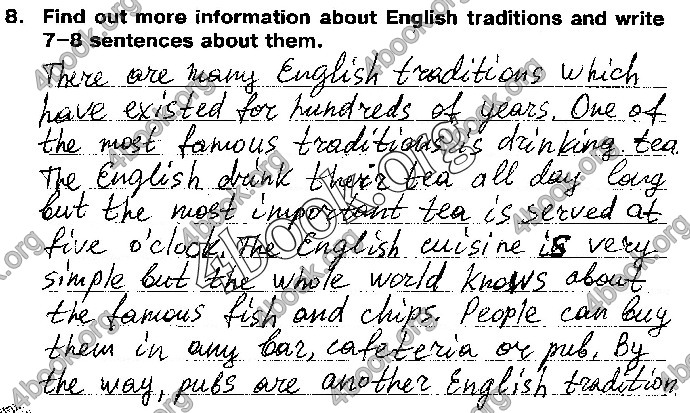 8. Find out more information about English traditions and write
7–8 sentences about them.
There are many English traditions which
have existed for hundreds of years. One of
the most famous traditions is drinking tea.
The English drink their tea all day long
but the most important tea is served at
five o'clock. The English cuisine is very
simple but the whole world knows about
the famous fish and chips. People can buy
them in any bar, cafeteria or pub. By
the way, pubs are another English tradition
4book.org